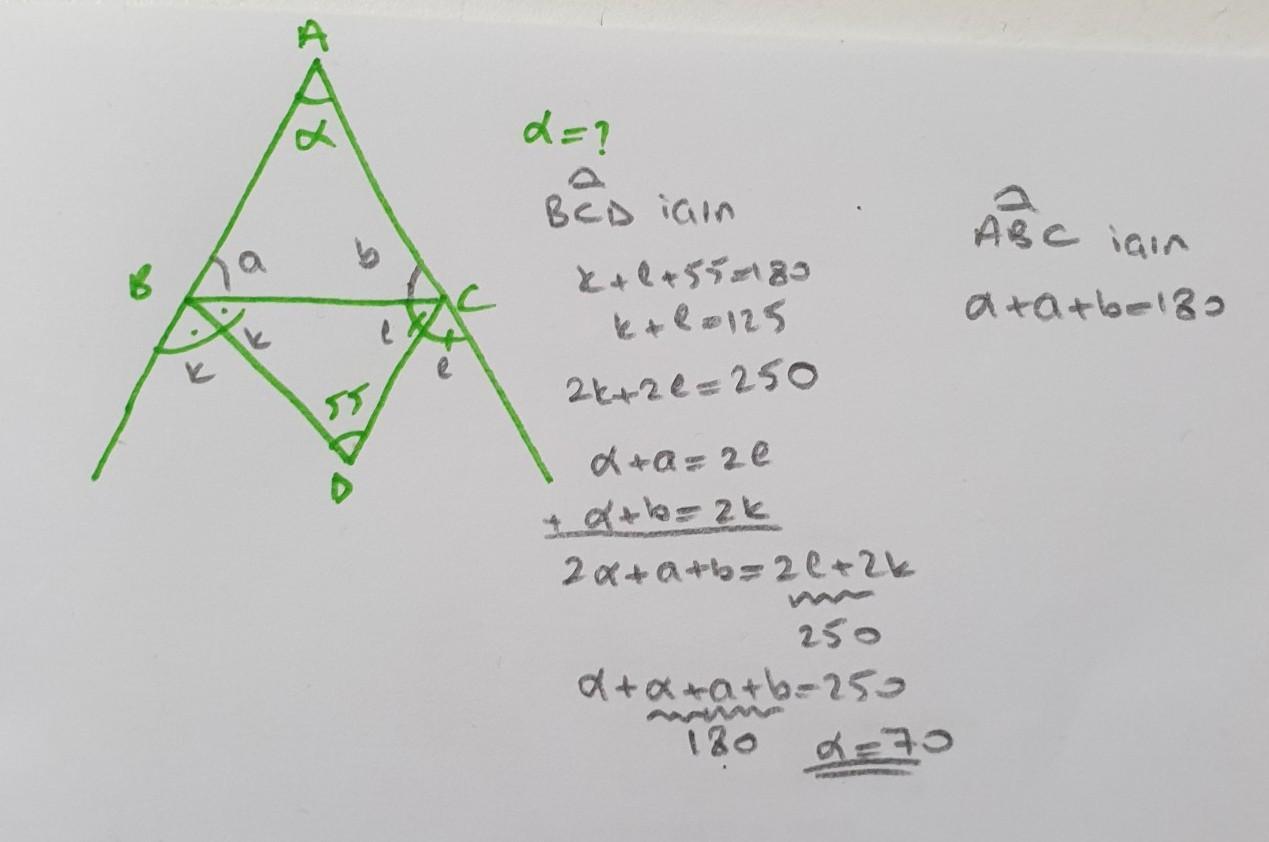 A
α
B
a
b
C
k
k
l
l
55
D
α=?
BCD için
k+l+55=180
k+l=125
2k+2l=250
α+a=2l
+ α+b=2k
2α+a+b=2l+2k
250
α+α+a+b=250
180
α=70
ABC için
α+a+b=180